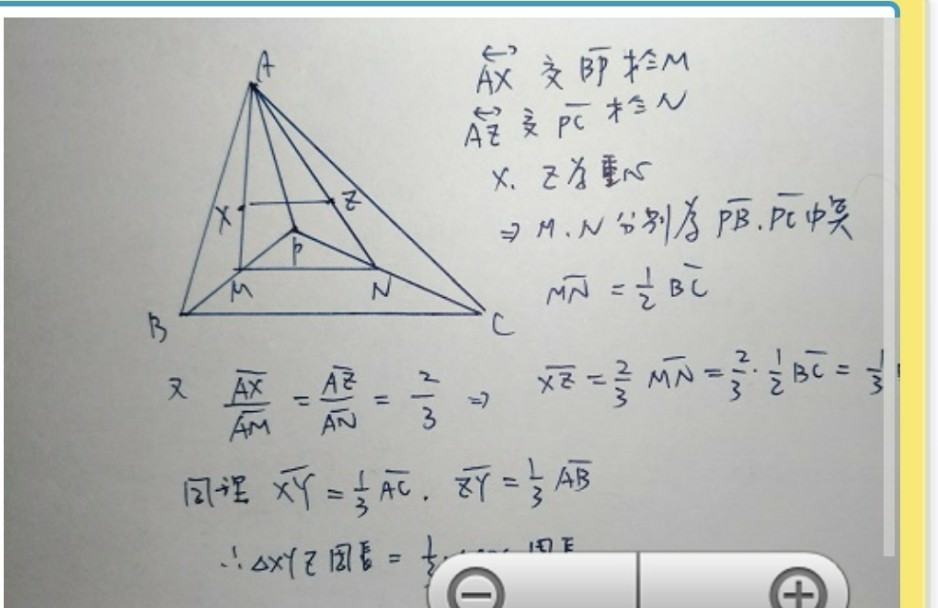 A
X
Z
P
M
N
B
C
AX 交 BP 於 M
AZ 交 PC 於 N
X. Z 為重心
⇒ M. N 分別為 PB. PC 中点
MN = 1/2 BC
又 AX/AM = AZ/AN = 2/3 ⇒ XZ = 2/3 MN = 2/3 · 1/2 BC = 1/3
同理 XY = 1/3 AC. ZY = 1/3 AB
∴ △XYZ 周長 =